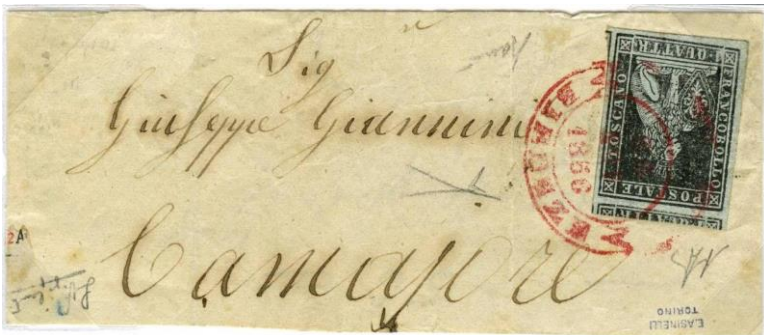 Sig
Giuseppe Giannini
Camajore
FRANCOBOLLO
POSTALE
TOSCANO
QUATTR
1856
2A
E.ASINELLI
TORINO